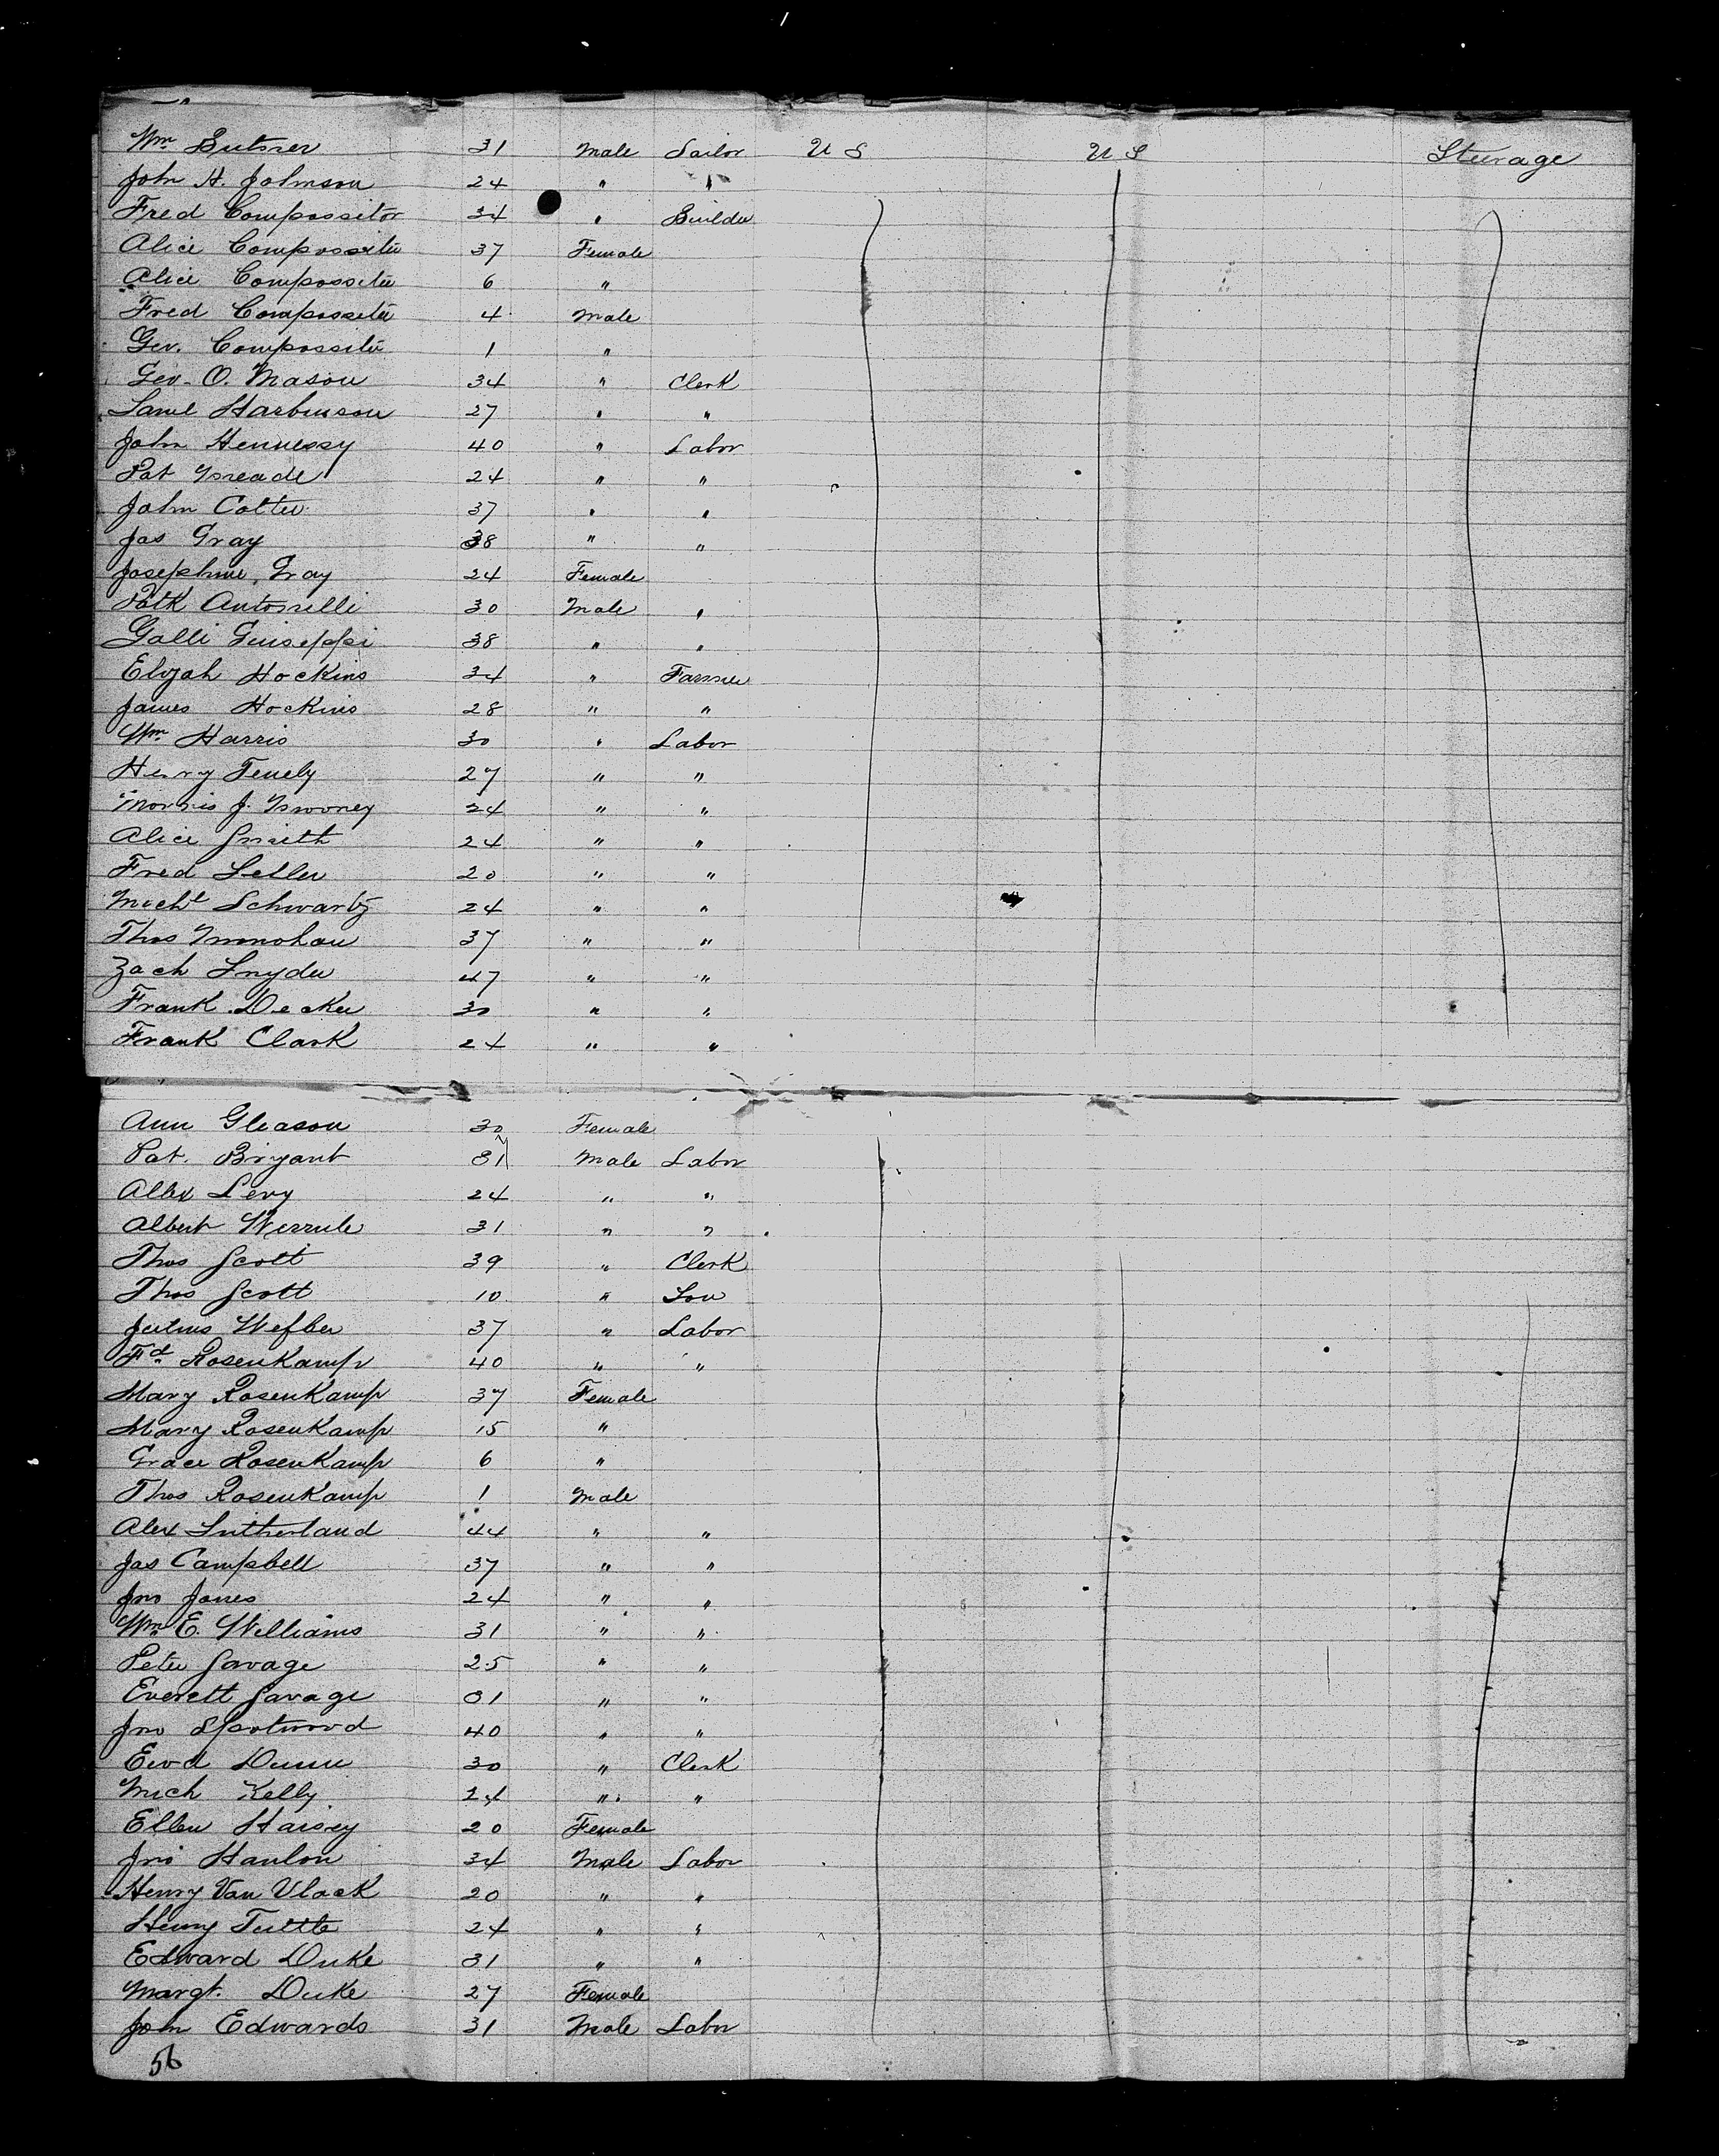 Wm Butner 31 Male Sailor U S U S Steerage
John H. Johnson 24 " "
Fred Compossitor 34 " Builder
Alice Compossiter 37 Female
Alice Compossiter 6 "
Fred Compossiter 4 Male
Geo. Compossiter 1 "
Geo. O. Mason 34 " Clerk
Saml Harbinson 27 " "
John Hennessy 40 " Labor
Pat Meade 24 " "
John Cotter 37 " "
Jas Gray 38 " "
Josephine Gray 24 Female
Patk Antonelli 30 Male "
Galli Guiseppi 38 " "
Elijah Hockins 34 " Farmer
James Hockins 28 " "
Wm Harris 30 " Labor
Henry Tenely 27 " "
Morris J. Mooney 24 " "
Alice Smith 24 " "
Fred Seller 20 " "
Michl Schwartz 24 " "
Thos Monohan 37 " "
Zach Snyder 47 " "
Frank Decker 30 " "
Frank Clark 24 " "
Ann Gleason 30 Female
Pat. Bryant 31 Male Labor
Alex Levy 24 " "
Albert 31 " "
Thos Scott 39 " Clerk
Thos Scott 10 " Son
Julius 37 " Labor
Fd RosenKamp 40 " "
Mary RosenKamp 37 Female
Mary RosenKamp 15 "
Grace RosenKamp 6 "
Thos RosenKamp 1 Male
Alex Sutherland 44 " "
Jas Campbell 37 " "
Jno Jones 24 " "
Wm E. Williams 31 " "
Peter Savage 25 " "
Everett Savage 31 " "
Jno Spotwood 40 " "
Ewd Dunn 30 " Clerk
Mich Kelly 24 " "
Ellen Haisey 20 Female
Jno Hanlon 34 Male Labor
Henry Van Vlack 20 " "
Henry Tuttle 24 " "
Edward Duke 31 " "
Margt. Duke 27 Female
John Edwards 31 Male Labor
56